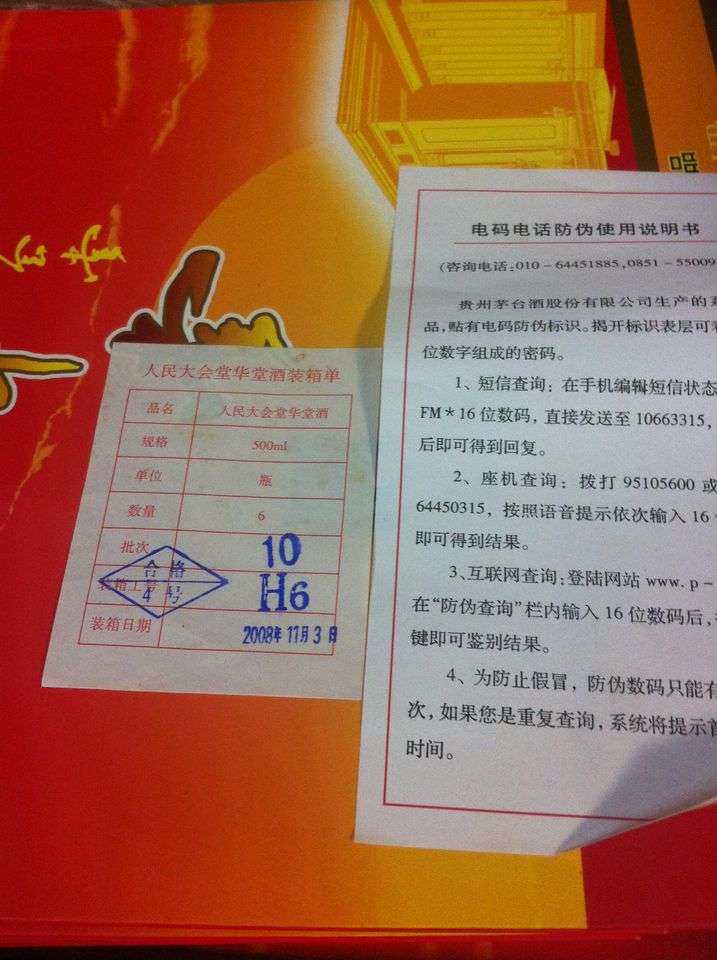 品
人民大会堂华堂酒装箱单
品名 人民大会堂华堂酒
规格 500ml
单位 瓶
数量 6
批次 10
装箱工号 H6
合格
4号
装箱日期 2008年11月3日
电码电话防伪使用说明书
(咨询电话:010-64451885,0851-55009
贵州茅台酒股份有限公司生产的
品,贴有电码防伪标识。揭开标识表层可
位数字组成的密码。
1、短信查询:在手机编辑短信状态
FM*16位数码,直接发送至10663315,
后即可得到回复。
2、座机查询:拨打95105600或
64450315,按照语音提示依次输入16
即可得到结果。
3、互联网查询:登陆网站www.p-
在“防伪查询”栏内输入16位数码后,
键即可鉴别结果。
4、为防止假冒,防伪数码只能有
次,如果您是重复查询,系统将提示首
时间。